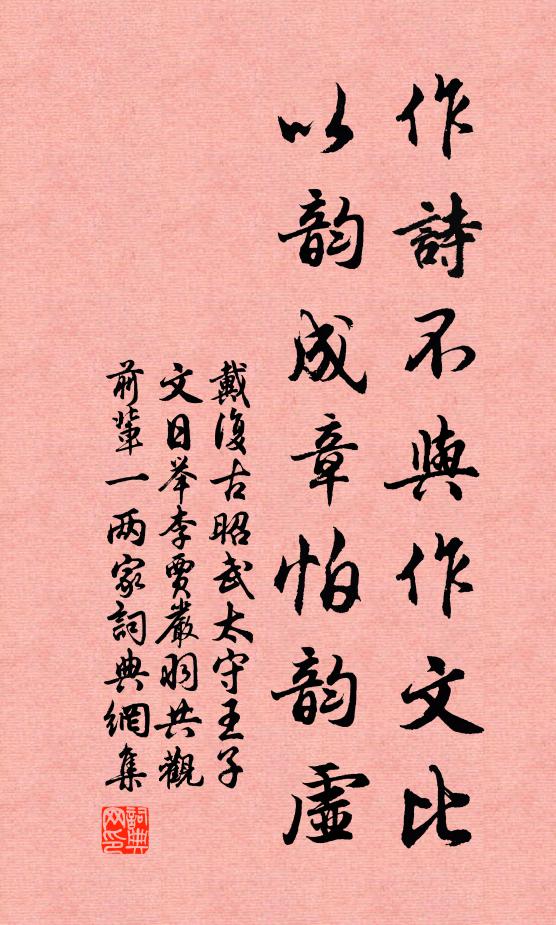 作詩不與作文比
以韵成章怕韵虛
戴復古昭武太守王子
文日举李賈嚴羽共觀
前輩一两家詞典網集
詞典网印